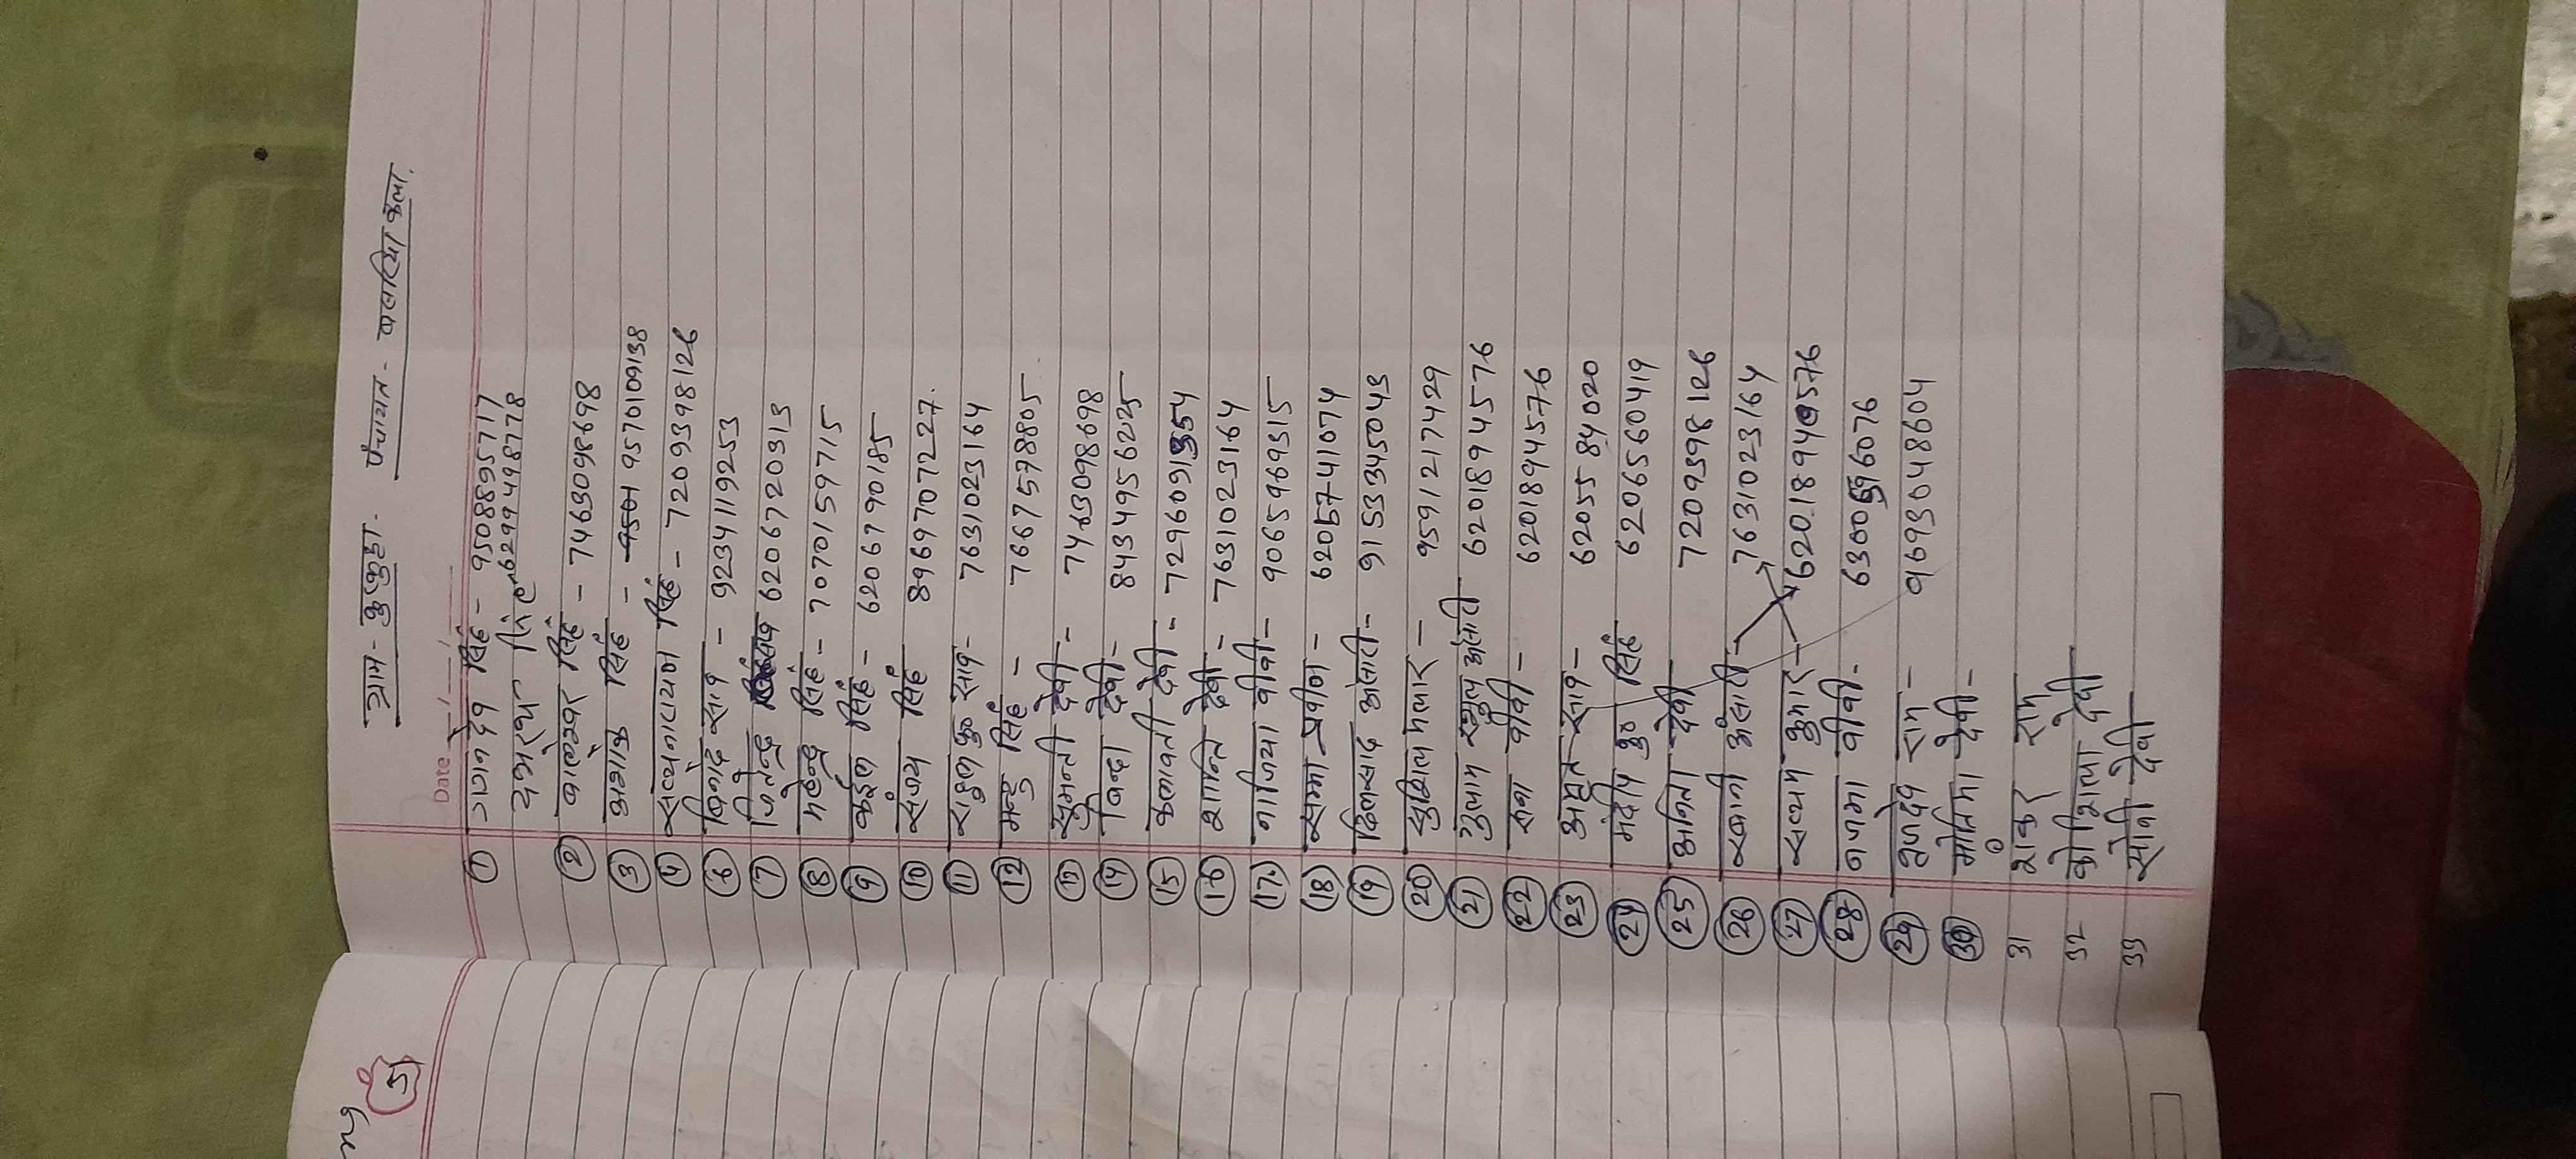 ग्राम - कुण्कुहा - पंचायत - बलरिया कला.
Date __/__/__
① गगनदेव सिंह - 9508895717
दशरथ सिंह - 6299498778
② बालेश्वर सिंह - 7463098698
③ अशोक सिंह - 9570109138
④ सत्यनारायण सिंह - 7209398126
⑥ विनोद साव - 9234119253
⑦ जितेन्द्र साव 6206720313
⑧ महेन्द्र सिंह - 7070159715
⑨ कईल सिंह - 6206790185
⑩ संजय सिंह 8969707227.
⑪ कु० साव - 7631023164
⑫ मन्टु सिंह - 7667578805
⑬ सुमन्ती देवी - 7463098698
⑭ विन्दा देवी - 8434956225
⑮ कलावती देवी - 7296091354
⑯ शान्ति देवी - 7631023164
⑰ नाजिया बीबी - 9065969315
⑱ समा प्रवीण - 6205741074
⑲ दिलसाद अंसारी - 9153345043
⑳ सुशिल मलार - 9591217429
㉑ गुलाम रसुल अंसारी 6201894576
㉒ बीबी - 6201894576
㉓ साव - 6205584020
㉔ मंदीप कु० सिंह 6206560419
㉕ अनिता देवी 7209398126
㉖ रब्बानी अंसारी - 7631023164
㉗ सत्यम कुमार - 62018940576
㉘ नजमा बीबी - 6300596076
㉙ भुजदेव राम - 9693048604
㉚ मोतिमा देवी -
31 शंकर राम
32 कौशिला देवी
33 सोनी देवी
5